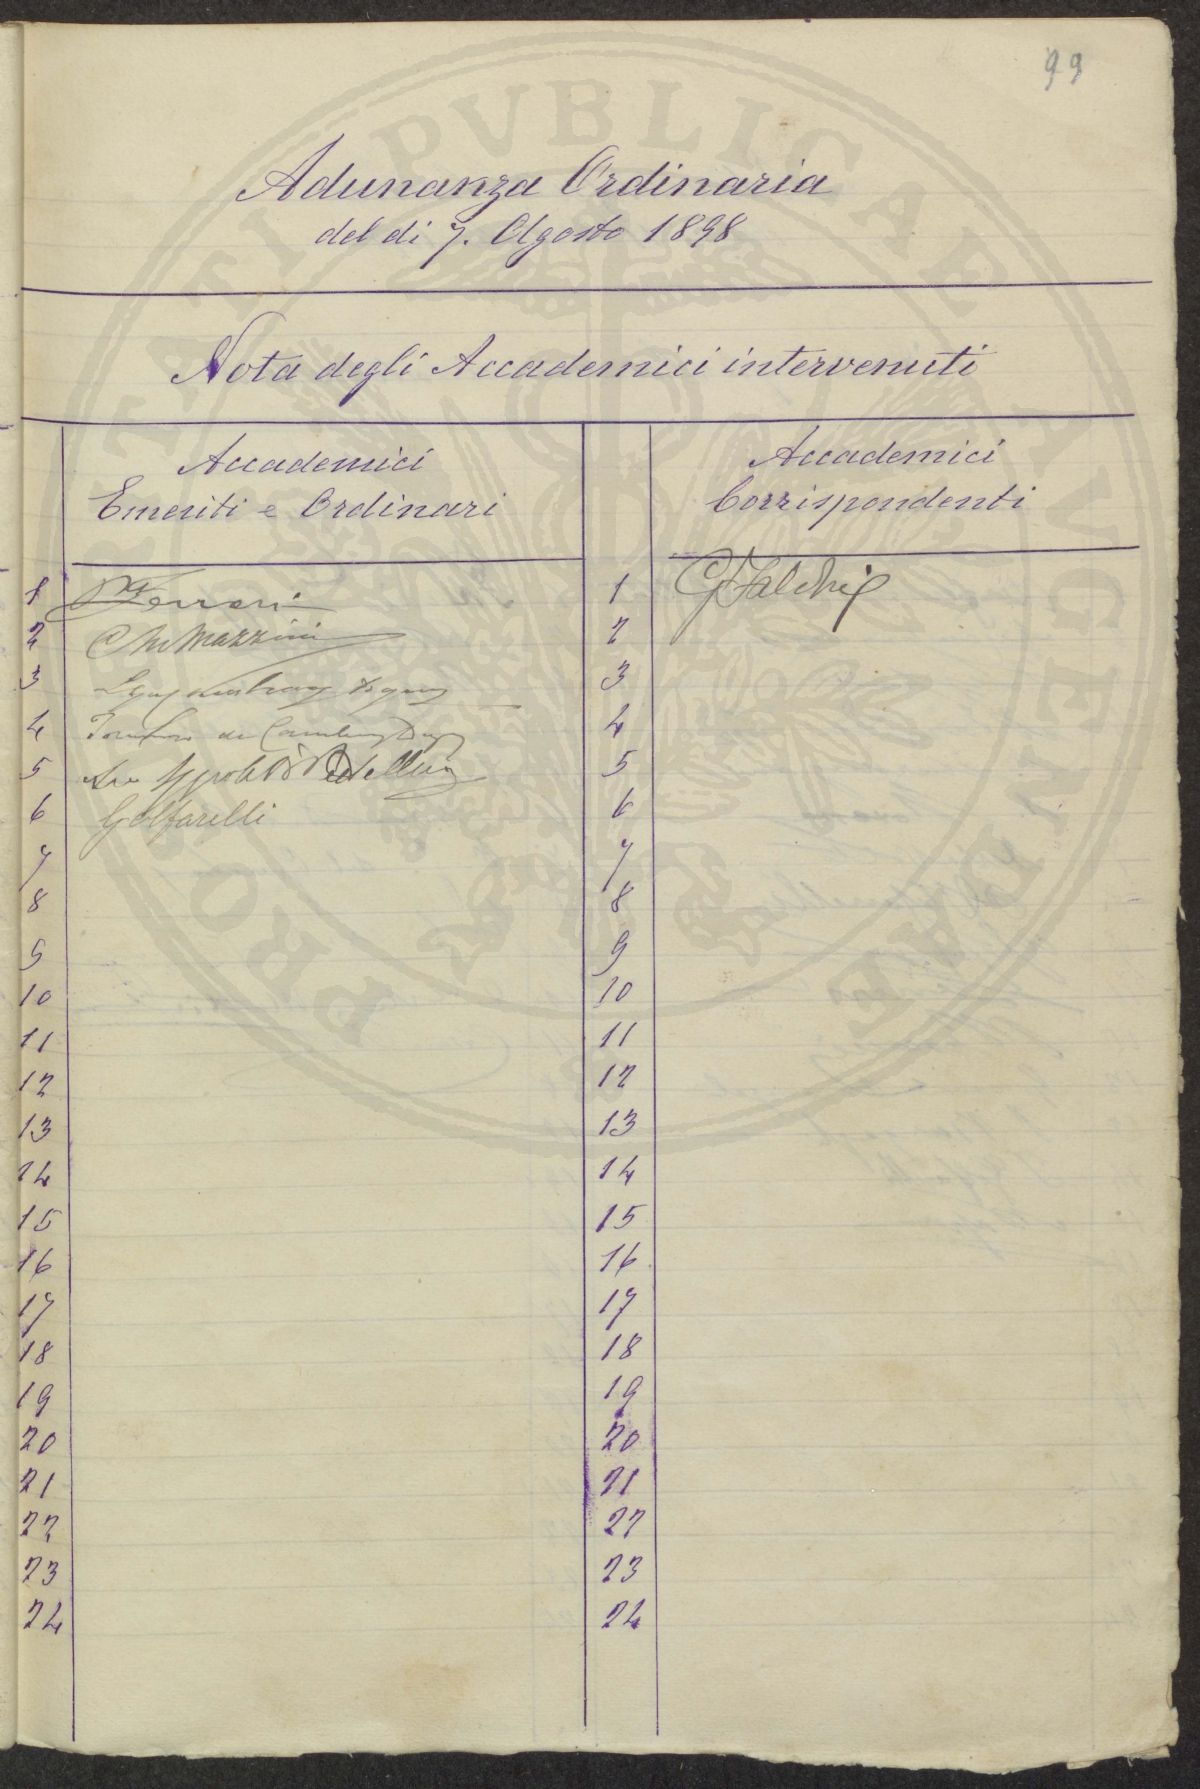 99
Adunanza Ordinaria
del di 7. Agosto 1898
Nota degli Accademici intervenuti
Accademici
Emeriti e Ordinari
Accademici
Corrispondenti
1 Ferrari
2 Mazzini
3
4
5
6 Golfarelli
7
8
9
10
11
12
13
14
15
16
17
18
19
20
21
22
23
24
1 G Falchi
2
3
4
5
6
7
8
9
10
11
12
13
14
15
16
17
18
19
20
21
22
23
24
PROSPERITATI PVBLICAE AVGENDAE